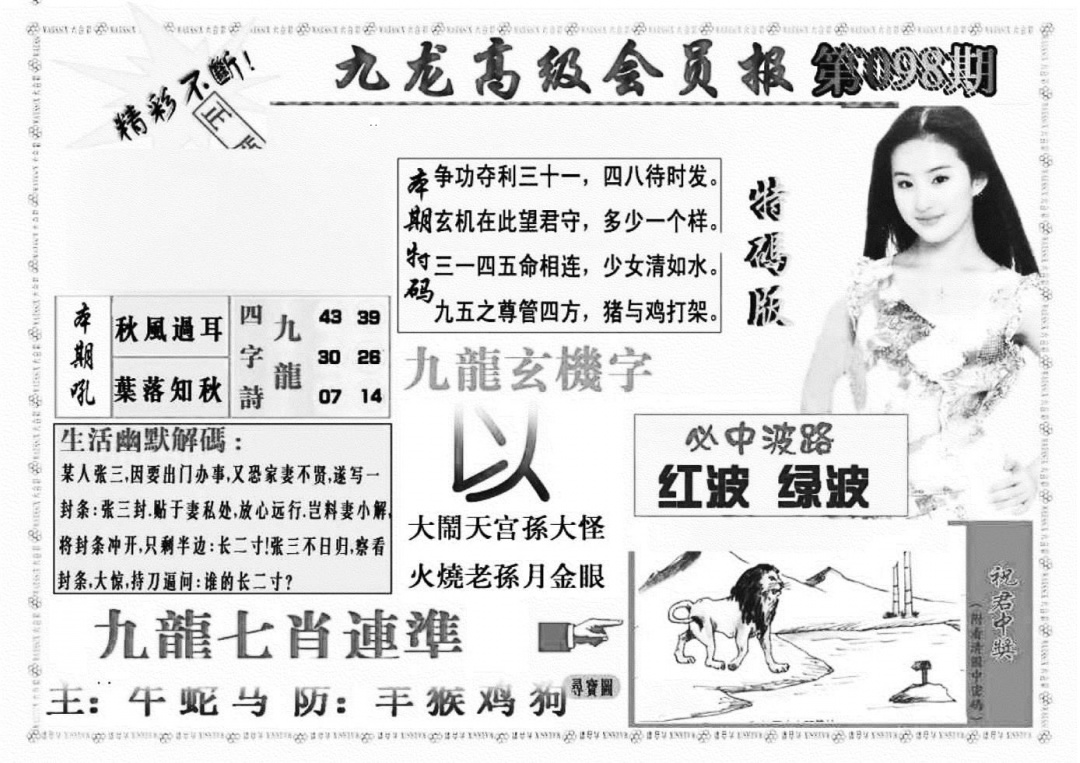 精彩不斷!
正版
九龙高级会员报 第098期
本期特码
争功夺利三十一，四八待时发。
玄机在此望君守，多少一个样。
三一四五命相连，少女清如水。
九五之尊管四方，猪与鸡打架。
特碼版
本期吼
秋風過耳
葉落知秋
四字詩
九龍
43 39
30 26
07 14
九龍玄機字
以
大鬧天宫孫大怪
火燒老孫月金眼
必中波路
红波 绿波
生活幽默解碼：
某人张三,因要出门办事,又恐家妻不贤,遂写一
封条:张三封.贴于妻私处,放心远行.岂料妻小解,
将封条冲开,只剩半边:长二寸!张三不日归,察看
封条,大惊,持刀逼问:谁的长二寸?
九龍七肖連準
主：牛蛇马 防：羊猴鸡狗
尋寶圖
祝君中獎
（附看清圖中密碼）